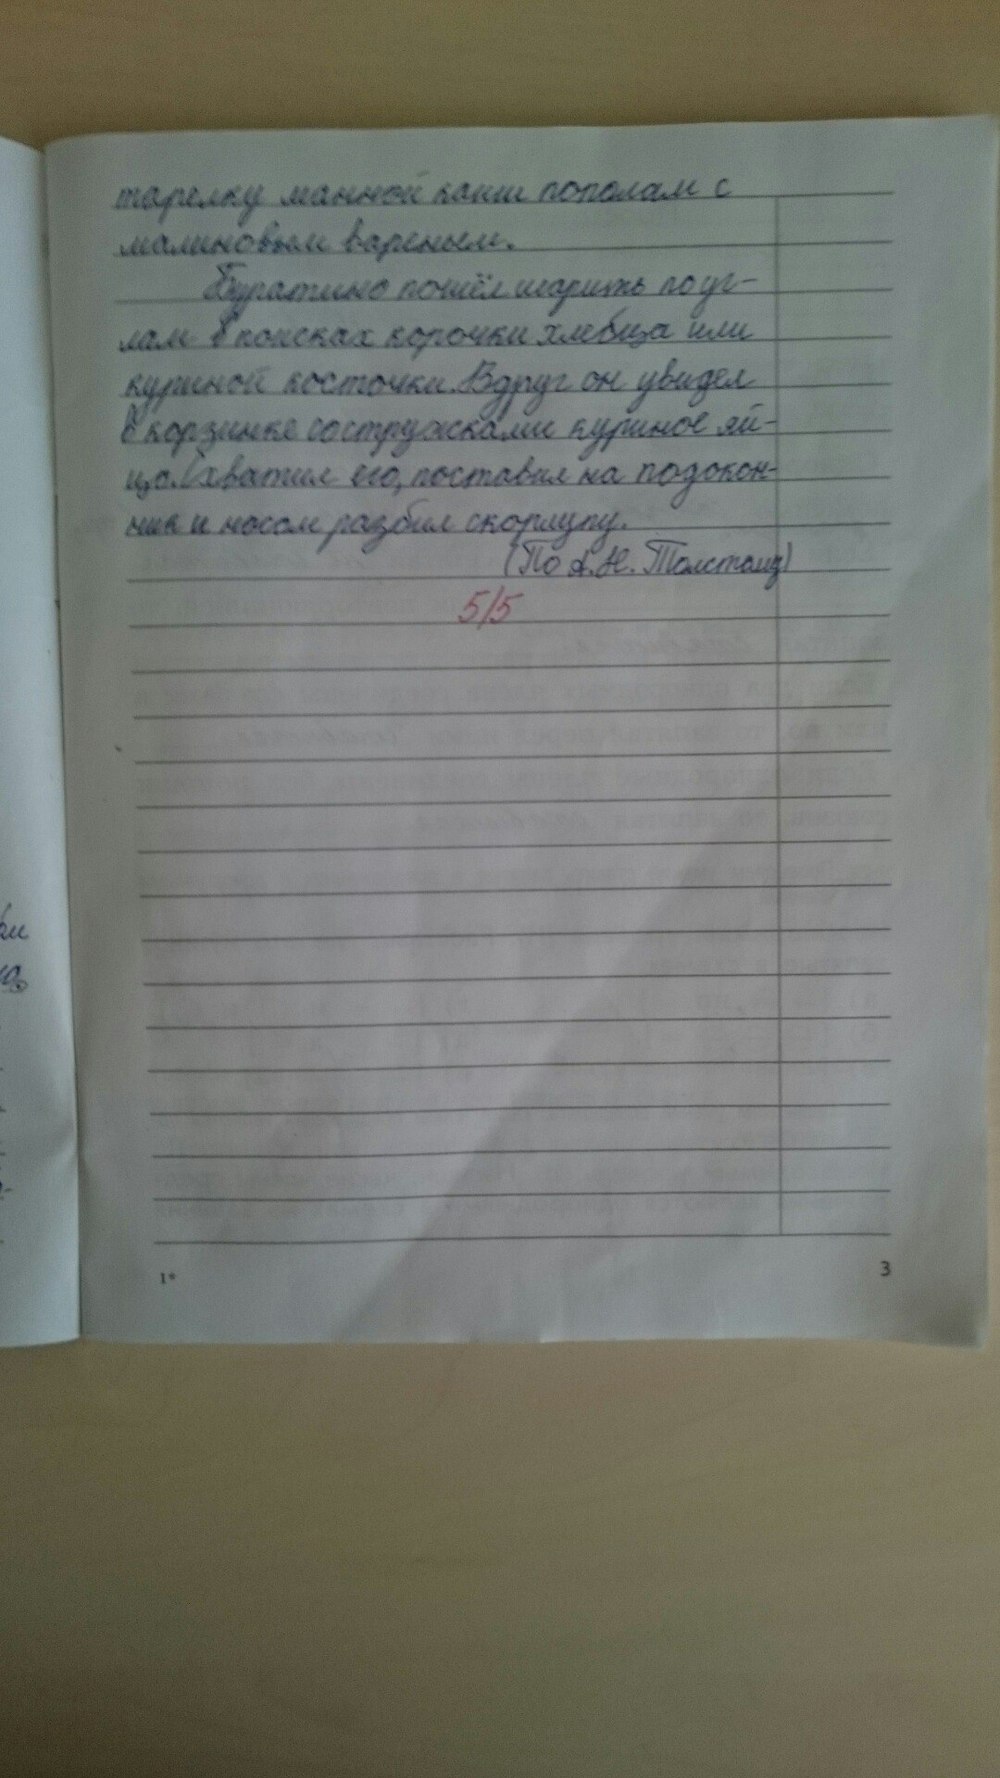 тарелку манной каши пополам с
малиновым вареньем.
Буратино пошёл шарить по уг-
лам в поисках корочки хлебца или
куриной косточки. Вдруг он увидел
в корзинке со стружками куриное яй-
цо. Схватил его, поставил на подокон-
ник и носом разбил скорлупу.
(По А.Н. Толстому)
5/5
1*
3